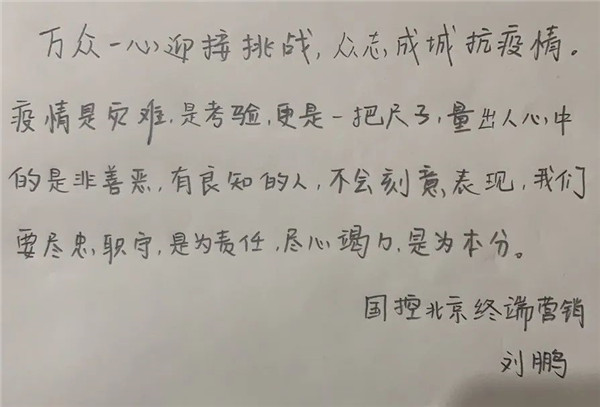 万众一心迎接挑战,众志成城抗疫情。
疫情是灾难,是考验,更是一把尺子,量出人心中
的是非善恶,有良知的人,不会刻意表现,我们
要尽忠职守,是为责任,尽心竭力,是为本分。
国控北京终端营销
刘鹏